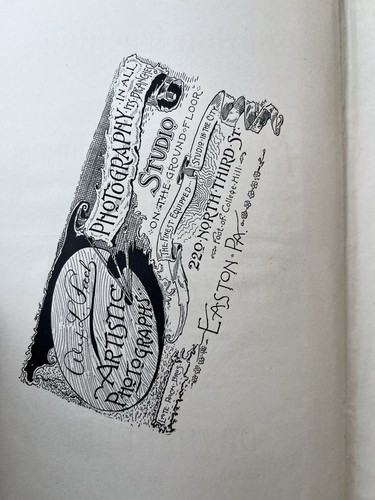 PHOTOGRAPHY IN ALL
ITS BRANCHES
STUDIO
ON THE GROUND FLOOR
THE FINEST EQUIPPED STUDIO IN THE CITY
220 NORTH THIRD ST
Foot of College Hill
EASTON PA.
ARTISTIC
PHOTOGRAPHS